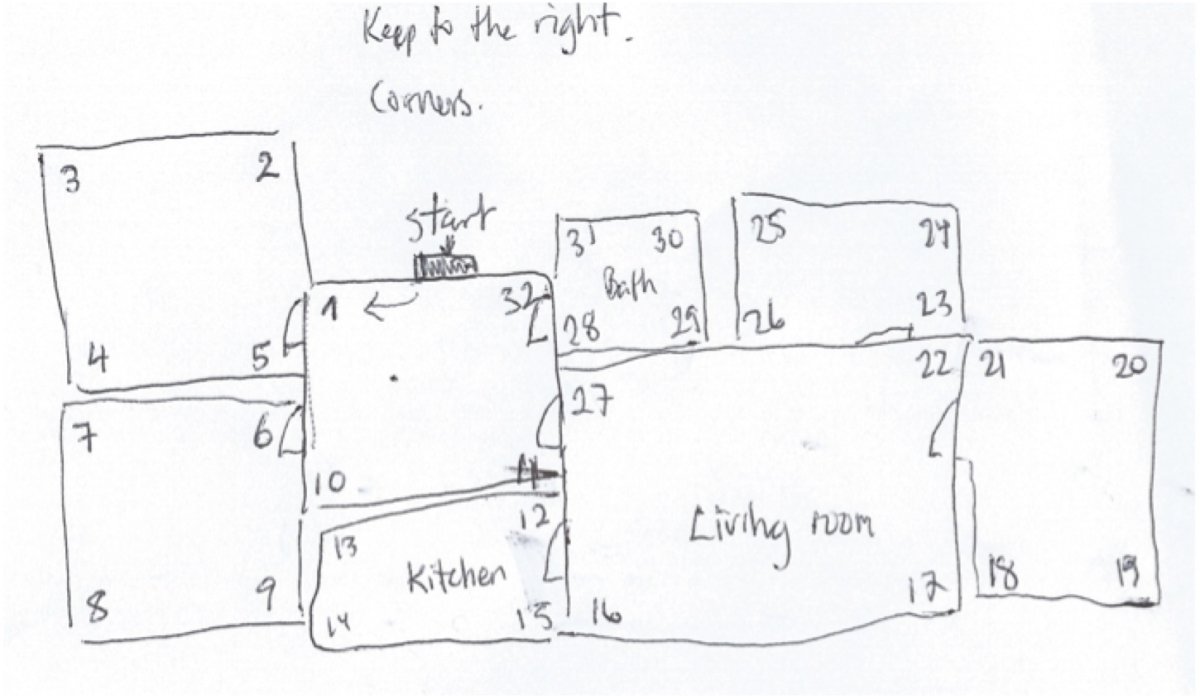 Keep to the right.
Corners.
3 2
start
31 30
25 24
Bath
1 32
28 29
26 23
4 5
22 21 20
27
7 6
10 11
12
Living room
13
Kitchen
8 9
18 19
17
14 15 16